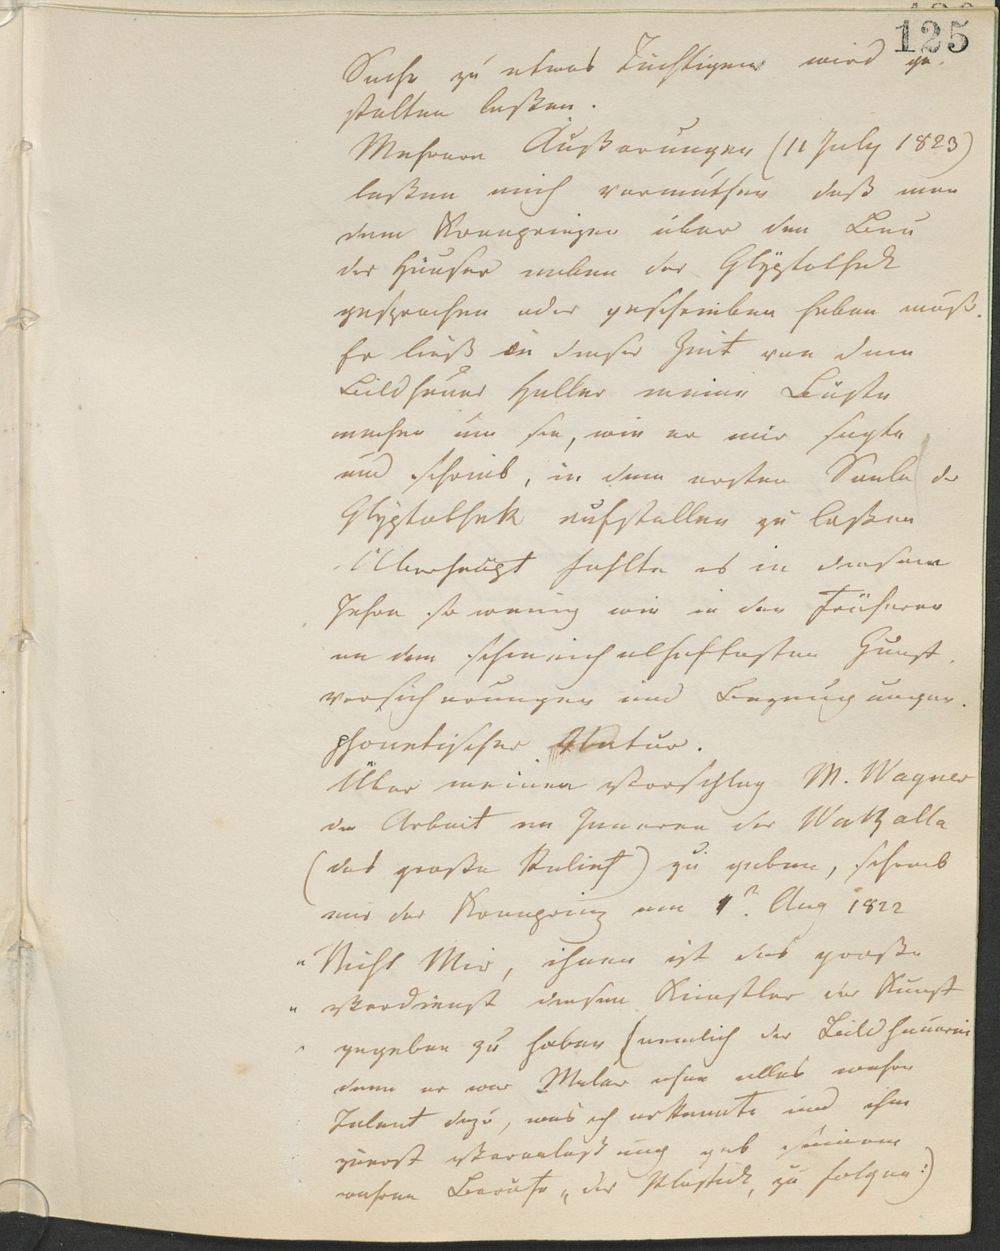 125
Sache zu etwas Tüchtigem wird ge-
stalten laßen.
Mehrere Äußerungen (11 July 1823)
laßen mich vermuthen daß man
dem Kronprinzen über den Bau
der Häuser neben der Glÿptothek
gesprochen oder geschrieben haben muß.
Er ließ in dieser Zeit von dem
Bildhauer Haller meine Büste
machen um sie, wie er mir sagte
und schrieb, in dem ersten Saale der
Glÿptothek aufstellen zu laßen
Überhaupt fehlte es in diesem
Jahre so wenig wie in den früheren
an den schmeichelhaftesten Gunst-
versicherungen und Bezeugungen
phonetischer Natur.
Über meinen Vorschlag M. Wagner
die Arbeit im Inneren der Walhalla
(das große Relief) zu geben, schrieb
mir der Kronprinz am 1n. Aug 1822
"Nicht Mir, ihnen ist das große
" Verdienst diesen Künstler der Kunst
" gegeben zu haben (nemlich der Bildhauerei
denn er war Maler ohne alles wahre
Talent dazu, was ich erkannte und ihm
zuerst Veranlaßung gab seinem
wahren Berufe, der Plastick, zu folgen:)